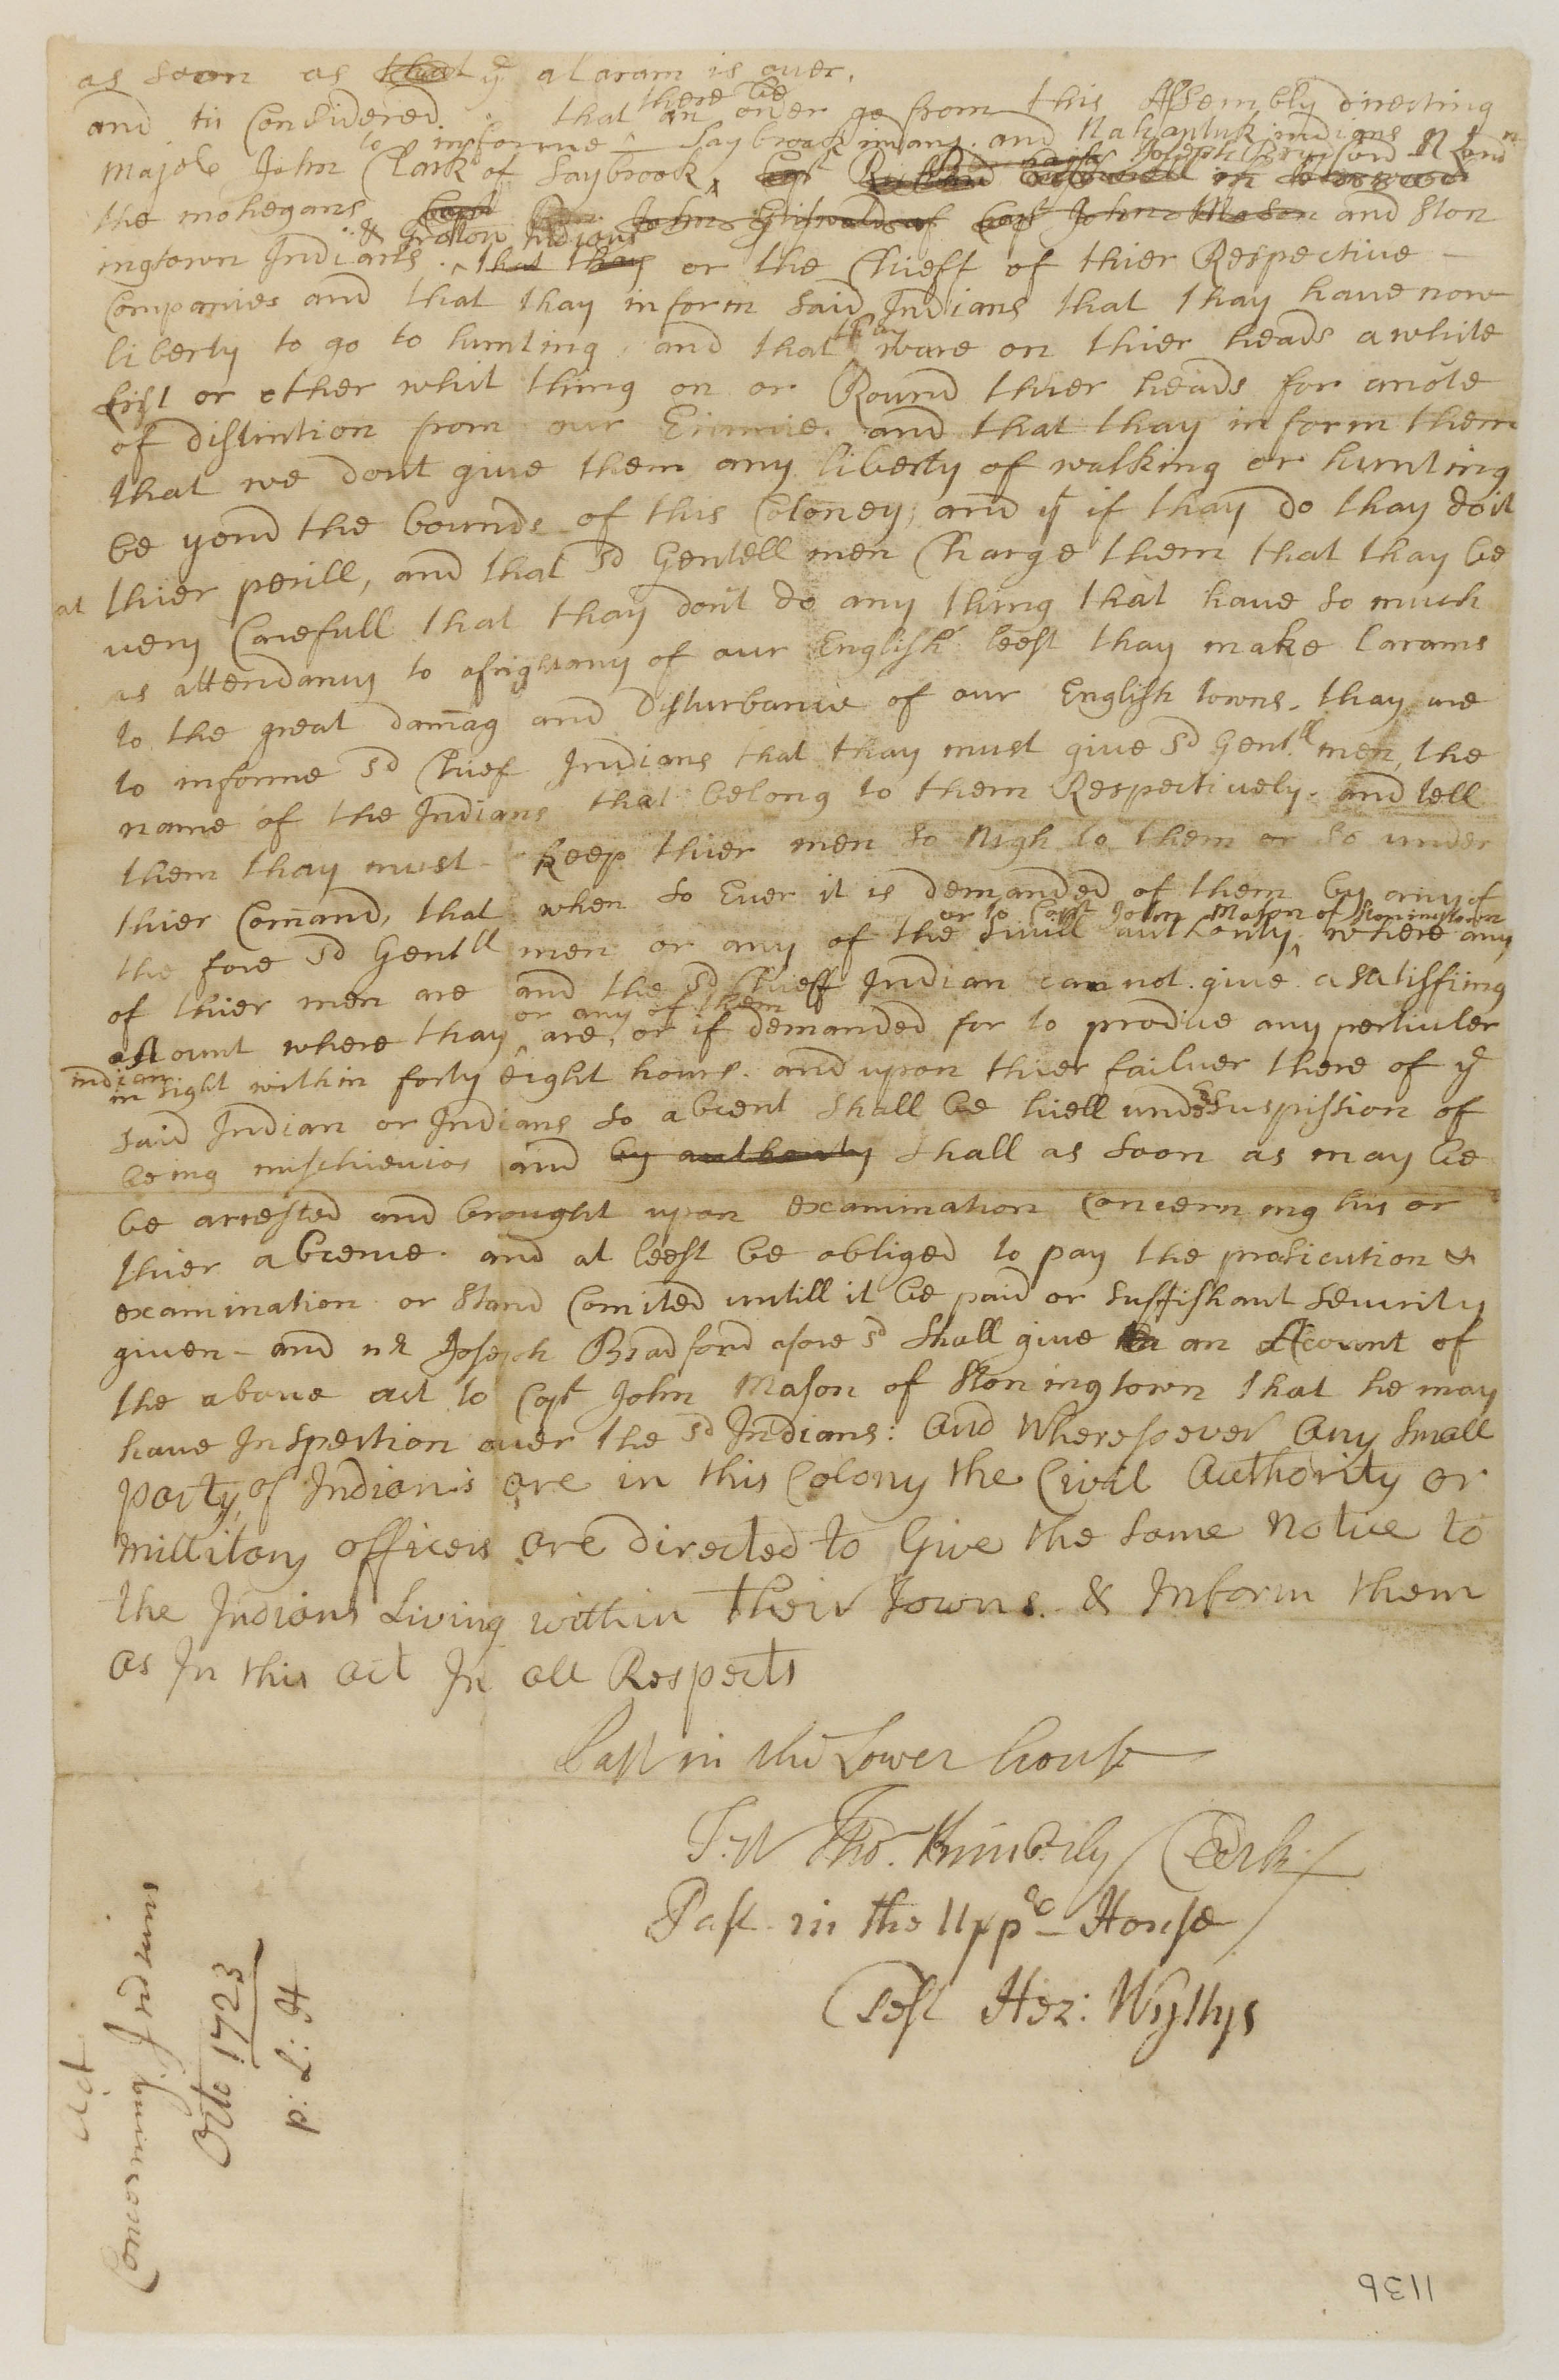 as soon as that ye alaram is over.
and tis Considered that there be an order go from this Assembly directing
Majole John Clark of Saybrook to informe Saybrook indians and Nahantuk indians Joseph Bradford N Lond
the mohegans Capt John Griswald of Capt John Mason and Ston
ingtown Indians & Groton Indians that thay or the Chieff of thier Respective
Companies and that thay inform said Indians that thay have now
liberty to go to hunting, and that thay ware on thier heads a white
fist or other whit thing on or Round thier heads for anote
of distintion from our Enimie. and that thay inform them
that we dont give them any liberty of walking or hunting
be yond the bounds of this Coloney, and yt if thay do thay doit
at thier perill, and that sd Gentell men Charge them that thay be
very Carefull that thay dont do any thing that have so much
as attendanny to afright any of our English leest thay make larams
to the great damag and Disturbance of our English towns. thay are
to informe sd Chief Indians that thay must give sd Gentll men, the
name of the Indians that belong to them Respectively. and tell
them thay must keep thier men so nigh to them or so under
thier Comand, that when so Ever it is demanded of them by any of
the fore sd Gentll men or any of the Sivill authority or to Capt John Mason of Stoningtown where any
of thier men are and the sd Chieff Indian can not give a satisfiing
account where thay or any of them are, or if demanded for to produe any perticuler
indian in sight within forty eight hours. and upon thier failuer there of ye
said Indian or Indians so abcent shall be hiell under suspission of
being mischievios and by authority shall as soon as may be
be arrested and brought upon examination Concerning his or
thier abcence. and at leest be obliged to pay the prosicution &
examination or stand Comited untill it be paid or suffishant security
given - and mr Joseph Bradford afore sd shall give an Account of
the above act to Capt John Mason of Stoningtown that he may
have Inspection over the sd Indians: And Wheresoever Any Small
Party of Indians are in this Colony the Civil Authority or
Millitary officers are Directed to Give the Same Notice to
the Indians Living within their Towns. & Inform them
as In this act In all Respects
Past in the Lower house
Test Tho. Kimberly Clerk
Past in the Uppe House
Test Hez: Wyllys
Act
Concerning Indians
Octo 1723
p: L: H
113b